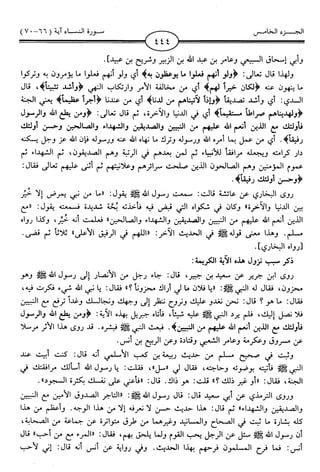 الجـزء الخامـس
٤٤٤
سورة النساء آية (٦٦-٧٠)
وأبي إسحاق السبيعي وعامر بن عبد الله بن الزبير وشريح بن عبيد].
ولهذا قال تعالى: ﴿ولو أنهم فعلوا ما يوعظون به﴾ أي ولو أنهم فعلوا ما يؤمرون به وتركوا
ما ينهون عنه ﴿لكان خيراً لهم﴾ أي من مخالفة الأمر وارتكاب النهي ﴿وأشد تثبيتاً﴾، قال
السدي: أي وأشد تصديقاً ﴿وإذاً لآتيناهم من لدنا﴾ أي من عندنا ﴿أجراً عظيماً﴾ يعني الجنة
﴿ولهديناهم صراطاً مستقيماً﴾ أي في الدنيا والآخرة، ثم قال تعالى: ﴿ومن يطع الله والرسول
فأولئك مع الذين أنعم الله عليهم من النبيين والصديقين والشهداء والصالحين وحسن أولئك
رفيقاً﴾. أي من عمل بما أمره الله ورسوله وترك ما نهاه الله عنه ورسوله فإن الله عز وجل يسكنه
دار كرامته ويجعله مرافقاً للأنبياء، ثم لمن بعدهم في الرتبة وهم الصديقون، ثم الشهداء ثم
عموم المؤمنين وهم الصالحون الذين صلحت سرائرهم وعلانيتهم ثم أثنى عليهم تعالى فقال:
﴿وحسن أولئك رفيقاً﴾.
روى البخاري عن عائشة قالت: سمعت رسول الله ﷺ يقول: «ما من نبي يمرض إلا خُيّر
بين الدنيا والآخرة» وكان في شكواه التي قبض فيه فأخذته بُحّة شديدة فسمعته يقول: «مع
الذين أنعم الله عليهم من النبيين والصديقين والشهداء والصالحين» فعلمت أنه خُيّر، وكذا رواه
مسلم. وهذا معنى قوله ﷺ في الحديث الآخر: «اللهم في الرفيق الأعلى» ثلاثاً ثم قضى.
[رواه البخاري].
ذكر سبب نزول هذه الآية الكريمة:
روى ابن جرير عن سعيد بن جبير، قال: جاء رجل من الأنصار إلى رسول الله ﷺ وهو
محزون، فقال له النبي ﷺ: «يا فلان ما لي أراك محزوناً؟» فقال: يا نبي الله شيء فكرت فيه،
فقال: ما هو؟ قال: نحن نغدو عليك ونروح ننظر إلى وجهك ونجالسك وغداً ترفع مع النبيين
فلا نصل إليك، فلم يرد النبي ﷺ عليه شيئاً، فأتاه جبريل بهذه الآية: ﴿ومن يطع الله والرسول
فأولئك مع الذين أنعم الله عليهم من النبيين﴾. فبعث النبي ﷺ فبشره. قد روى هذا الأثر مرسلا
عن مسروق وعكرمة وعامر الشعبي وقتادة وعن الربيع بن أنس.
وثبت في صحيح مسلم من حديث ربيعة بن كعب الأسلمي أنه قال: كنت أبيت عند
النبي ﷺ فأتيته بوضوئه وحاجته، فقال لي «سل»، فقلت: يا رسول الله أسألك مرافقتك في
الجنة، فقال: «أو غير ذلك ؟» قلت: هو ذاك. قال: «فأعني على نفسك بكثرة السجود».
وروى الترمذي عن أبي سعيد قال: قال رسول الله ﷺ: «التاجر الصدوق الأمين مع النبيين
والصديقين والشهداء» ثم قال: هذا حديث حسن لا نعرفه إلا من هذا الوجه. وأعظم من هذا
كله بشارة ما ثبت في الصحاح والمسانيد وغيرهما من طرق متواترة عن جماعة من الصحابة،
أن رسول الله ﷺ سئل عن الرجل يحب القوم ولما يلحق بهم، فقال: «المرء مع من أحب» قال
أنس: فما فرح المسلمون فرحهم بهذا الحديث. وفي رواية عن أنس أنه قال: إني لأحب